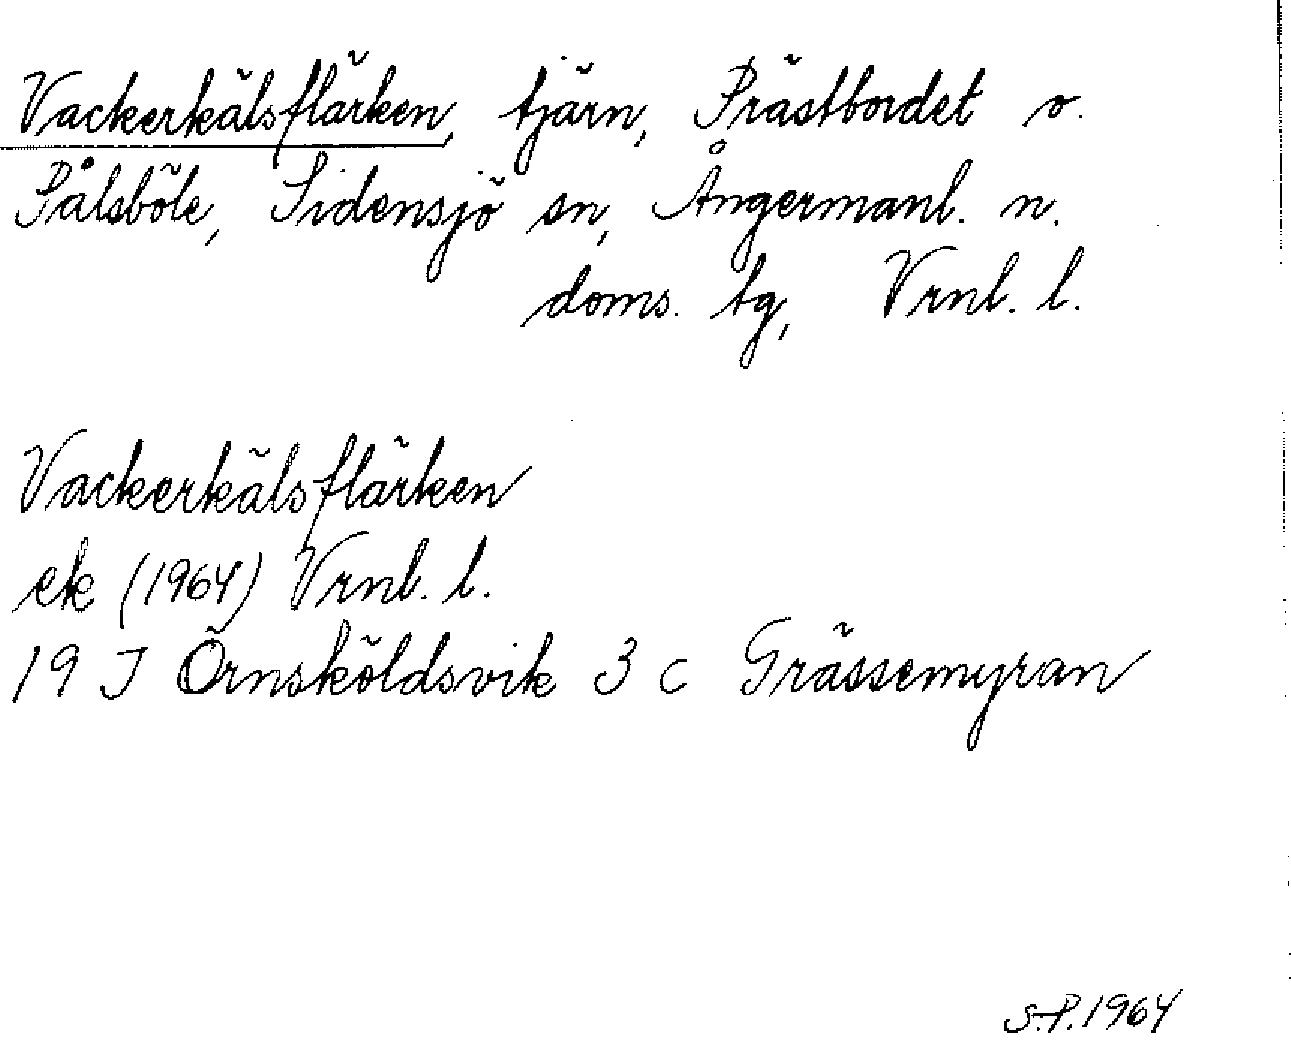 Vackerkälsflärken, tjärn, Prästbordet o.
Pålsböle, Sidensjö sn, Ångermanl. n.
doms. tg, Vrnl. l.
Vackerkälsflärken
ek (1964) Vrnl. l.
19 J Örnsköldsvik 3 c Grässemyran
S.P. 1964